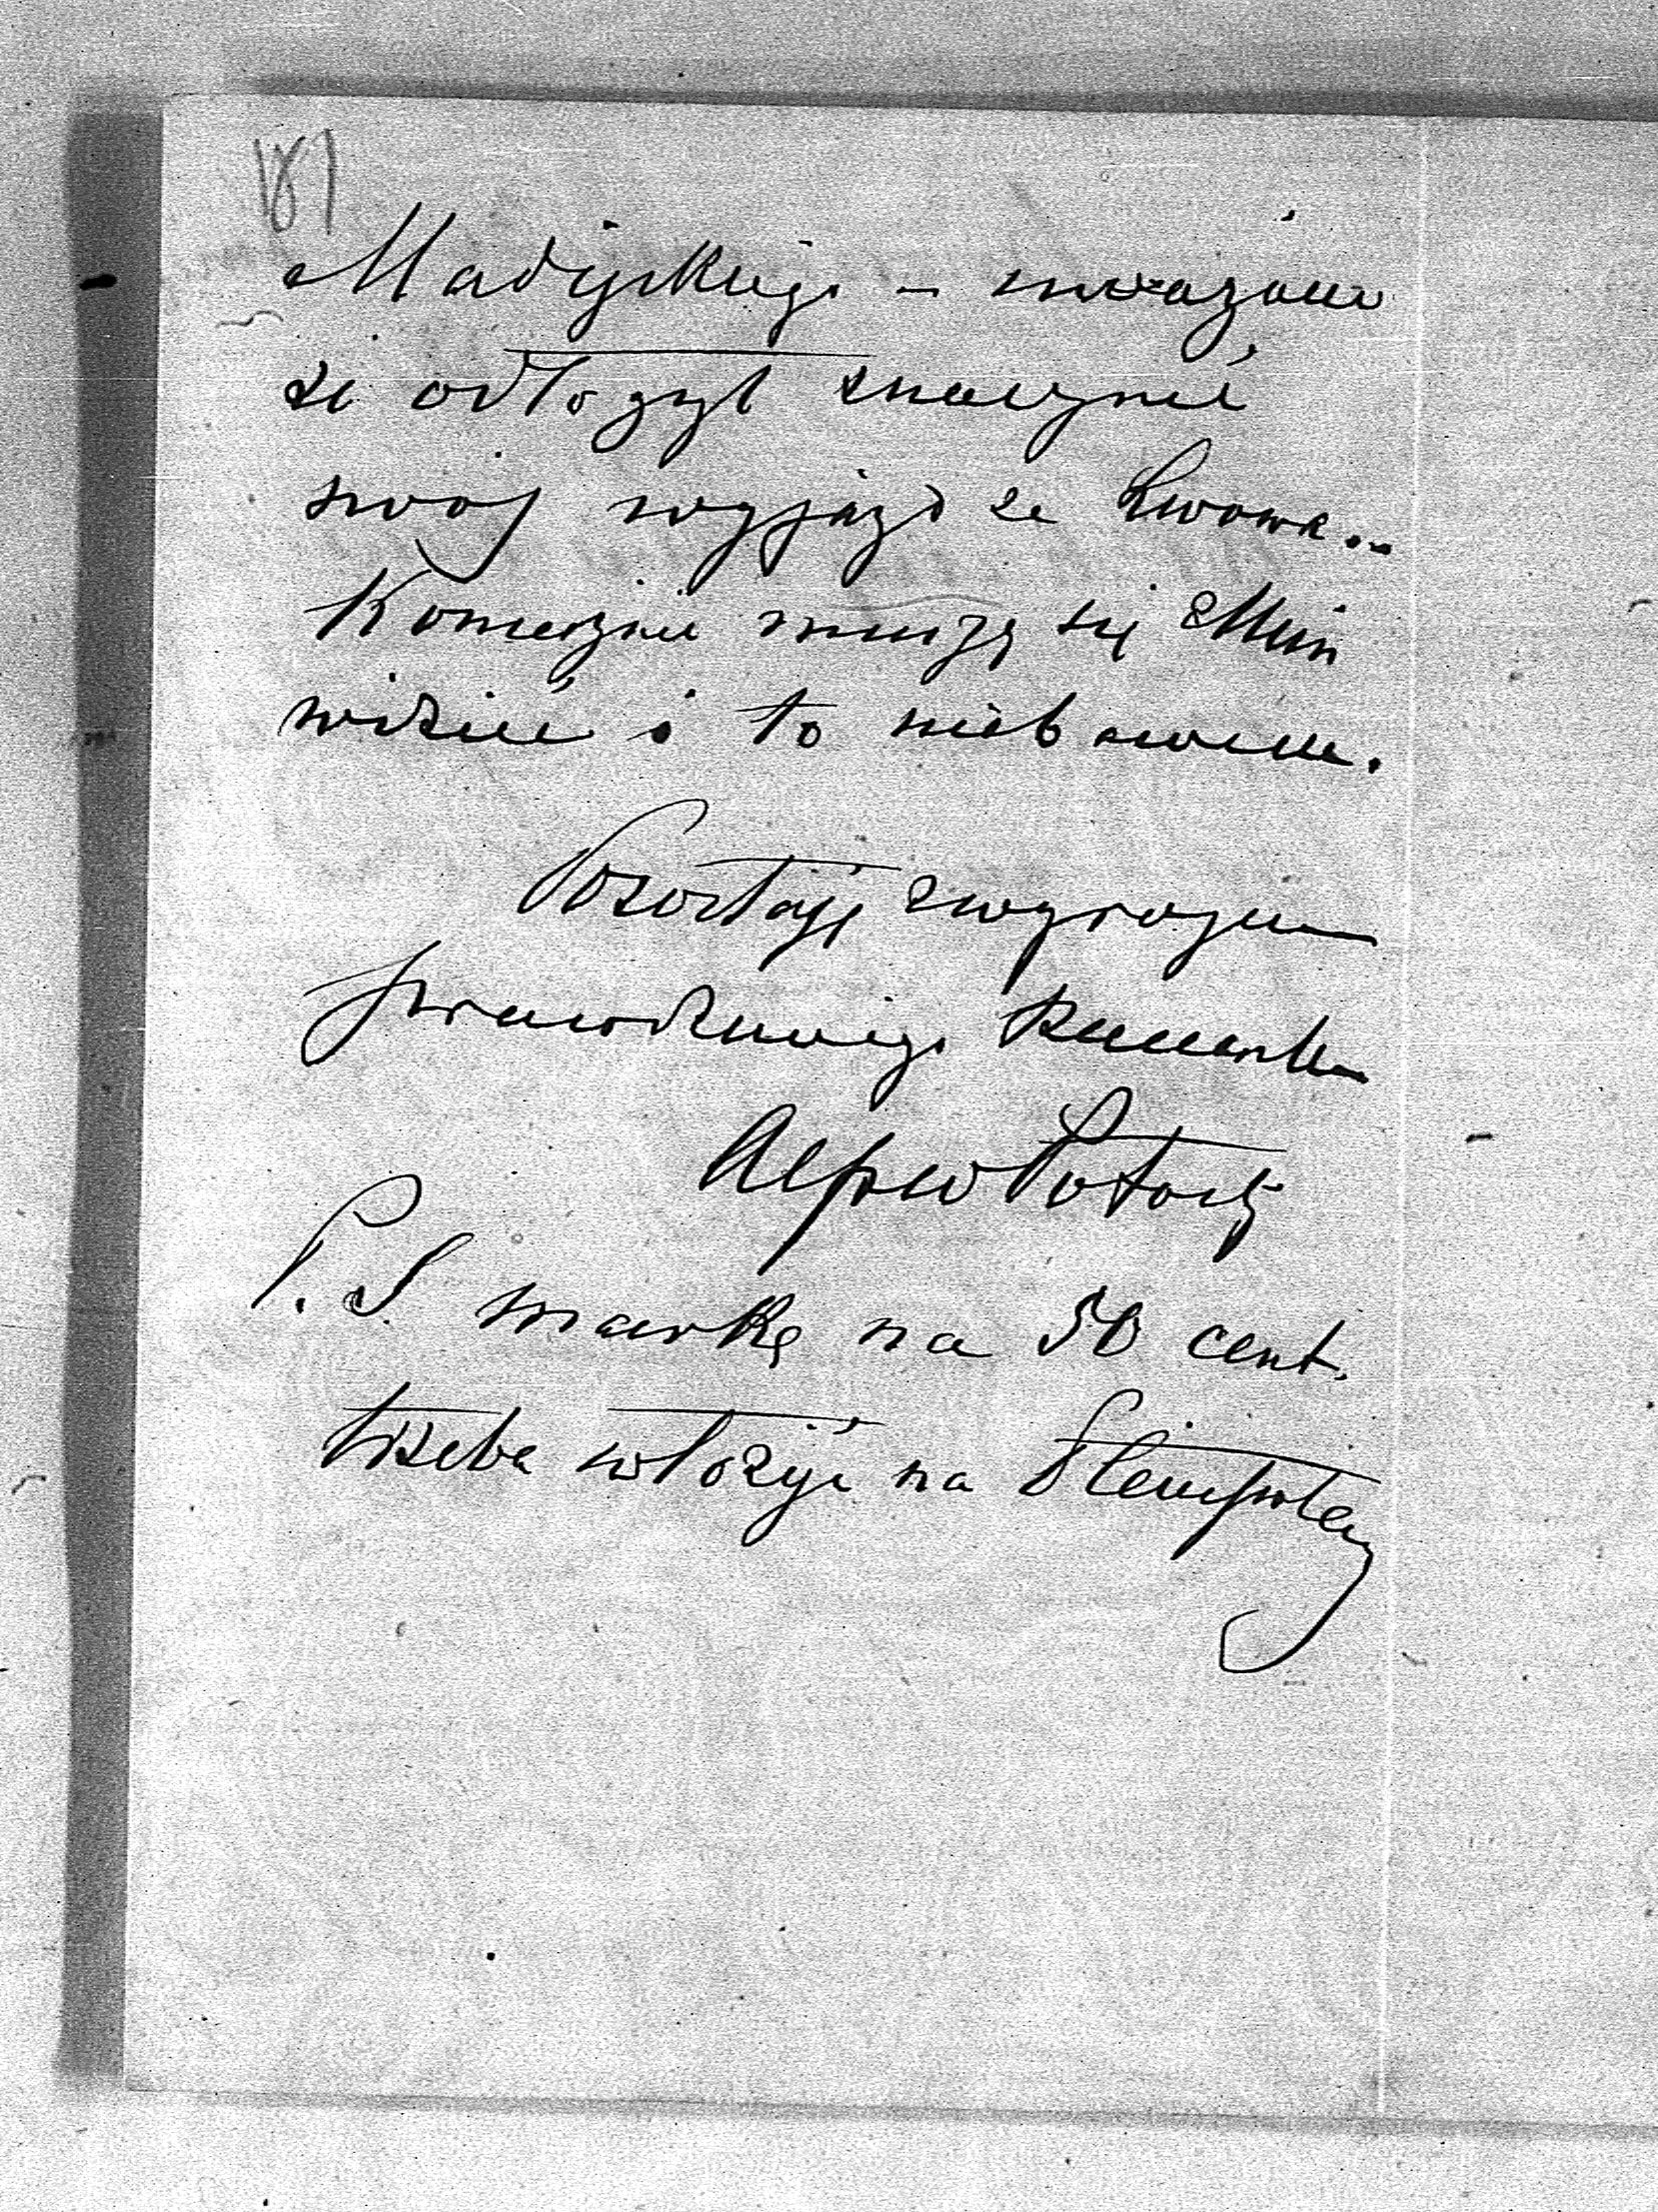 181
Madejskiego – uważam
że odłożył znacznie
swój wyjazd ze Lwowa...
Koniecznie muszę się z Nim
widzieć i to niebawem.
Pozostaję z wyrazem
prawdziwego szacunku
Alfred Potocki
P. S. markę na 50 cent.
trzeba włożyć na Stempel